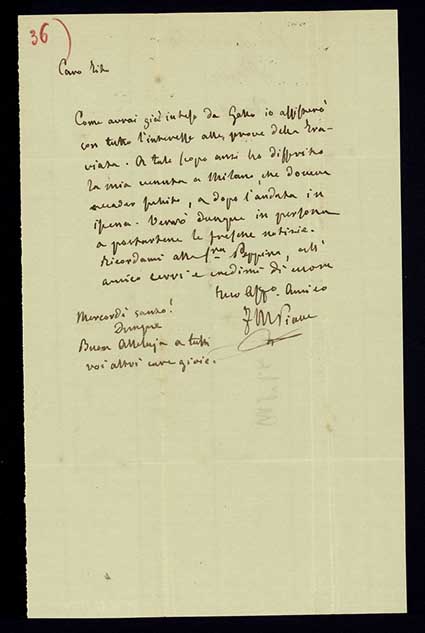 36)
Caro Tito
Come avrai già inteso da Gallo io assisterò
con tutto l'interesse alle prove della Tra-
viata. A tale scopo anzi ho differito
la mia venuta a Milano, che doveva
accader subito, a dopo l'andata in
iscena. Verrò dunque in persona
a portartene le fresche notizie.
Ricordami alla Sra Peppina, all'
amico e credimi di cuore
tuo Affo. Amico
F M Piave
Mercordì santo!
Dunque
Buon Alleluja a tutti
voi altri care gioie.